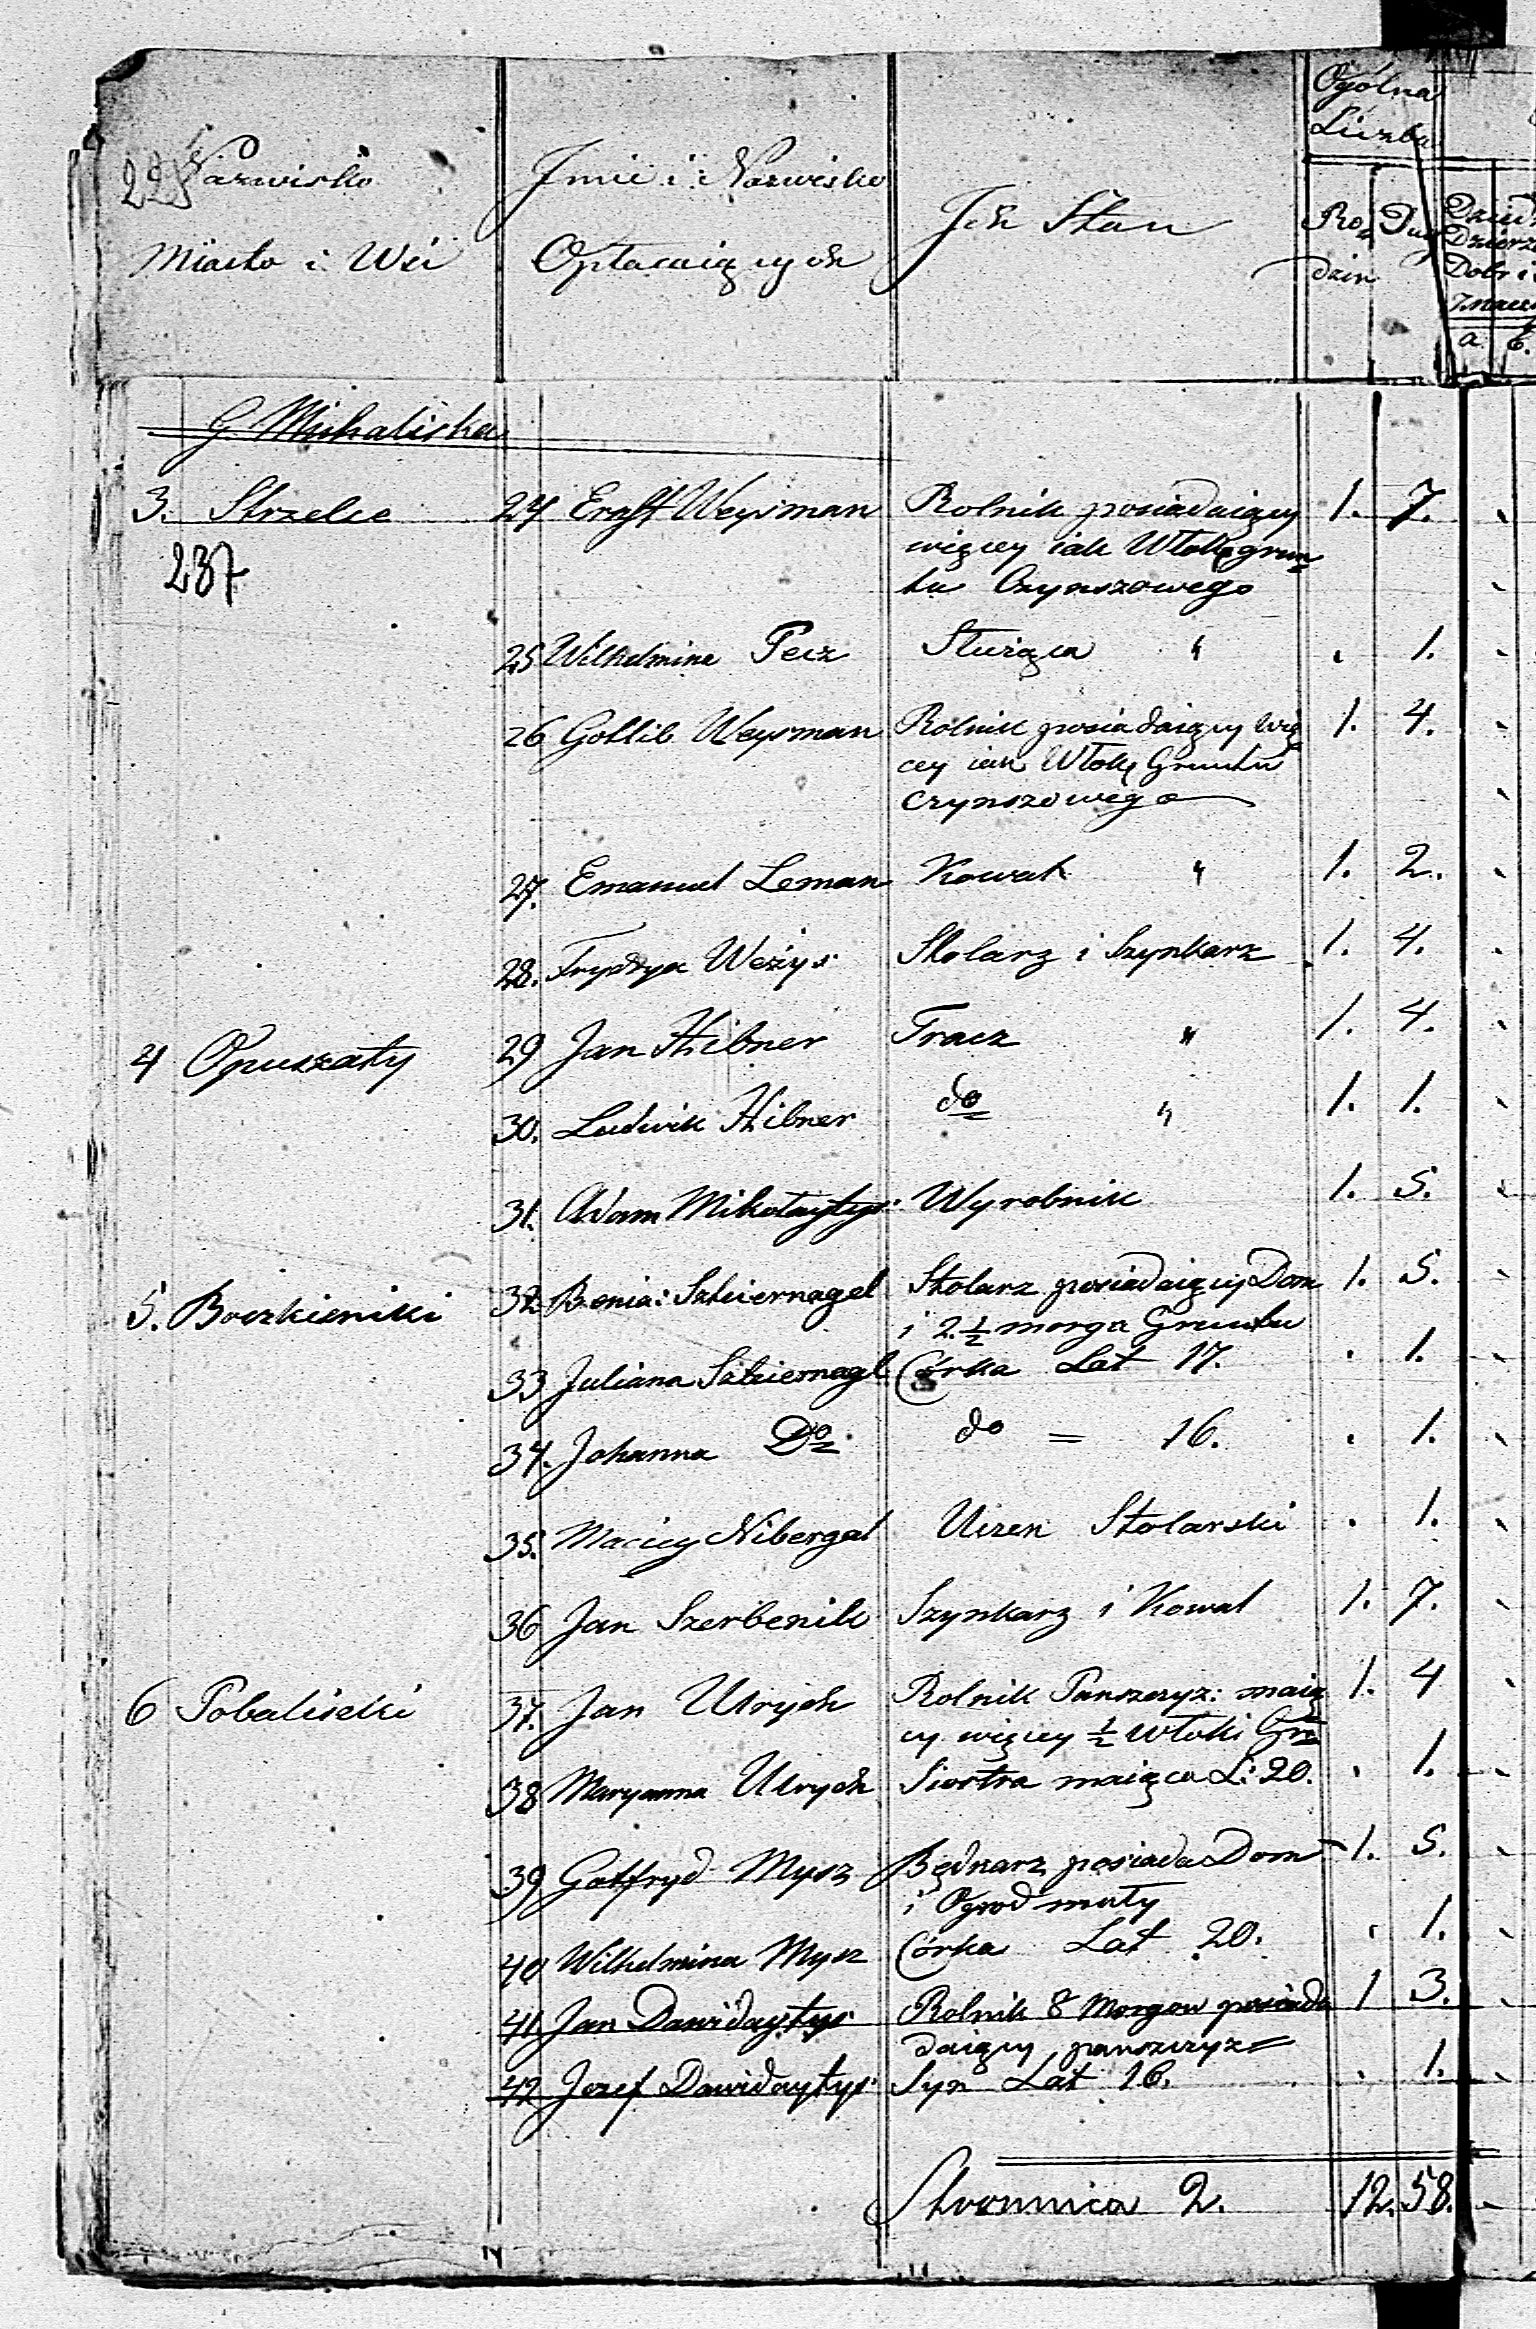 Nazwisko
Miasta i Wsi
Jmie i Nazwisko
Opłacaiących
Jch Stan
Ogólna
Liczba
Ro=
dzin
Dusz
a b.
G. Michaliszka
3. Strzelce 24 Ernst Weysman Rolnik posiadaiący 1. 7.
więcey iak Włokę grun=
tu Czynszowego
237
25 Wilhelmine Pecz Służąca " . 1.
26 Gottlib Weysman Rolnik posiadaiący wię 1. 4.
cey iak Włokę Gruntu
czynszowego
27. Emanuel Leman Kowal " 1. 2.
28. Frydryx Weżys Stolarz i Szynkarz 1. 4.
4 Opuszaty 29 Jan Hibner Tracz " 1. 4.
30. Ludwik Hibner do " 1. 1.
31. Adam Mikołaytys Wyrobnik 1. 5.
5. Boczkieniki 32 Benia: Szticernagel Stolarz posiadaiący Dom 1. 5.
i 2.½ morga Gruntu
33 Juliana Szticernagl Córka Lat 17. . 1.
34. Johanna Do do = 16. . 1.
35. Maciey Nibergal Uczen Stolarski . 1.
36 Jan Szerbenik Szynkarz i Kowal 1. 7.
6 Pobaliszki 37. Jan Ulrych Rolnik Panszczyz: maią 1. 4
cy więcey ½ włoki Gr=
38 Maryanna Ulrych Siostra maiąca L: 20. . 1.
39 Gotfryd Mysz Będnarz posiada Dom 1. 5.
i Ogrod mały
40 Wilhelmina Mysz Córka Lat 20. . 1.
41. Jan Dawidaytys Rolnik 8 Morgow posiada 1 3.
daiący panszczyz=
42 Jozef Dawidaytys Syn Lat 16. . 1.
Stronnica 2. 12. 58.